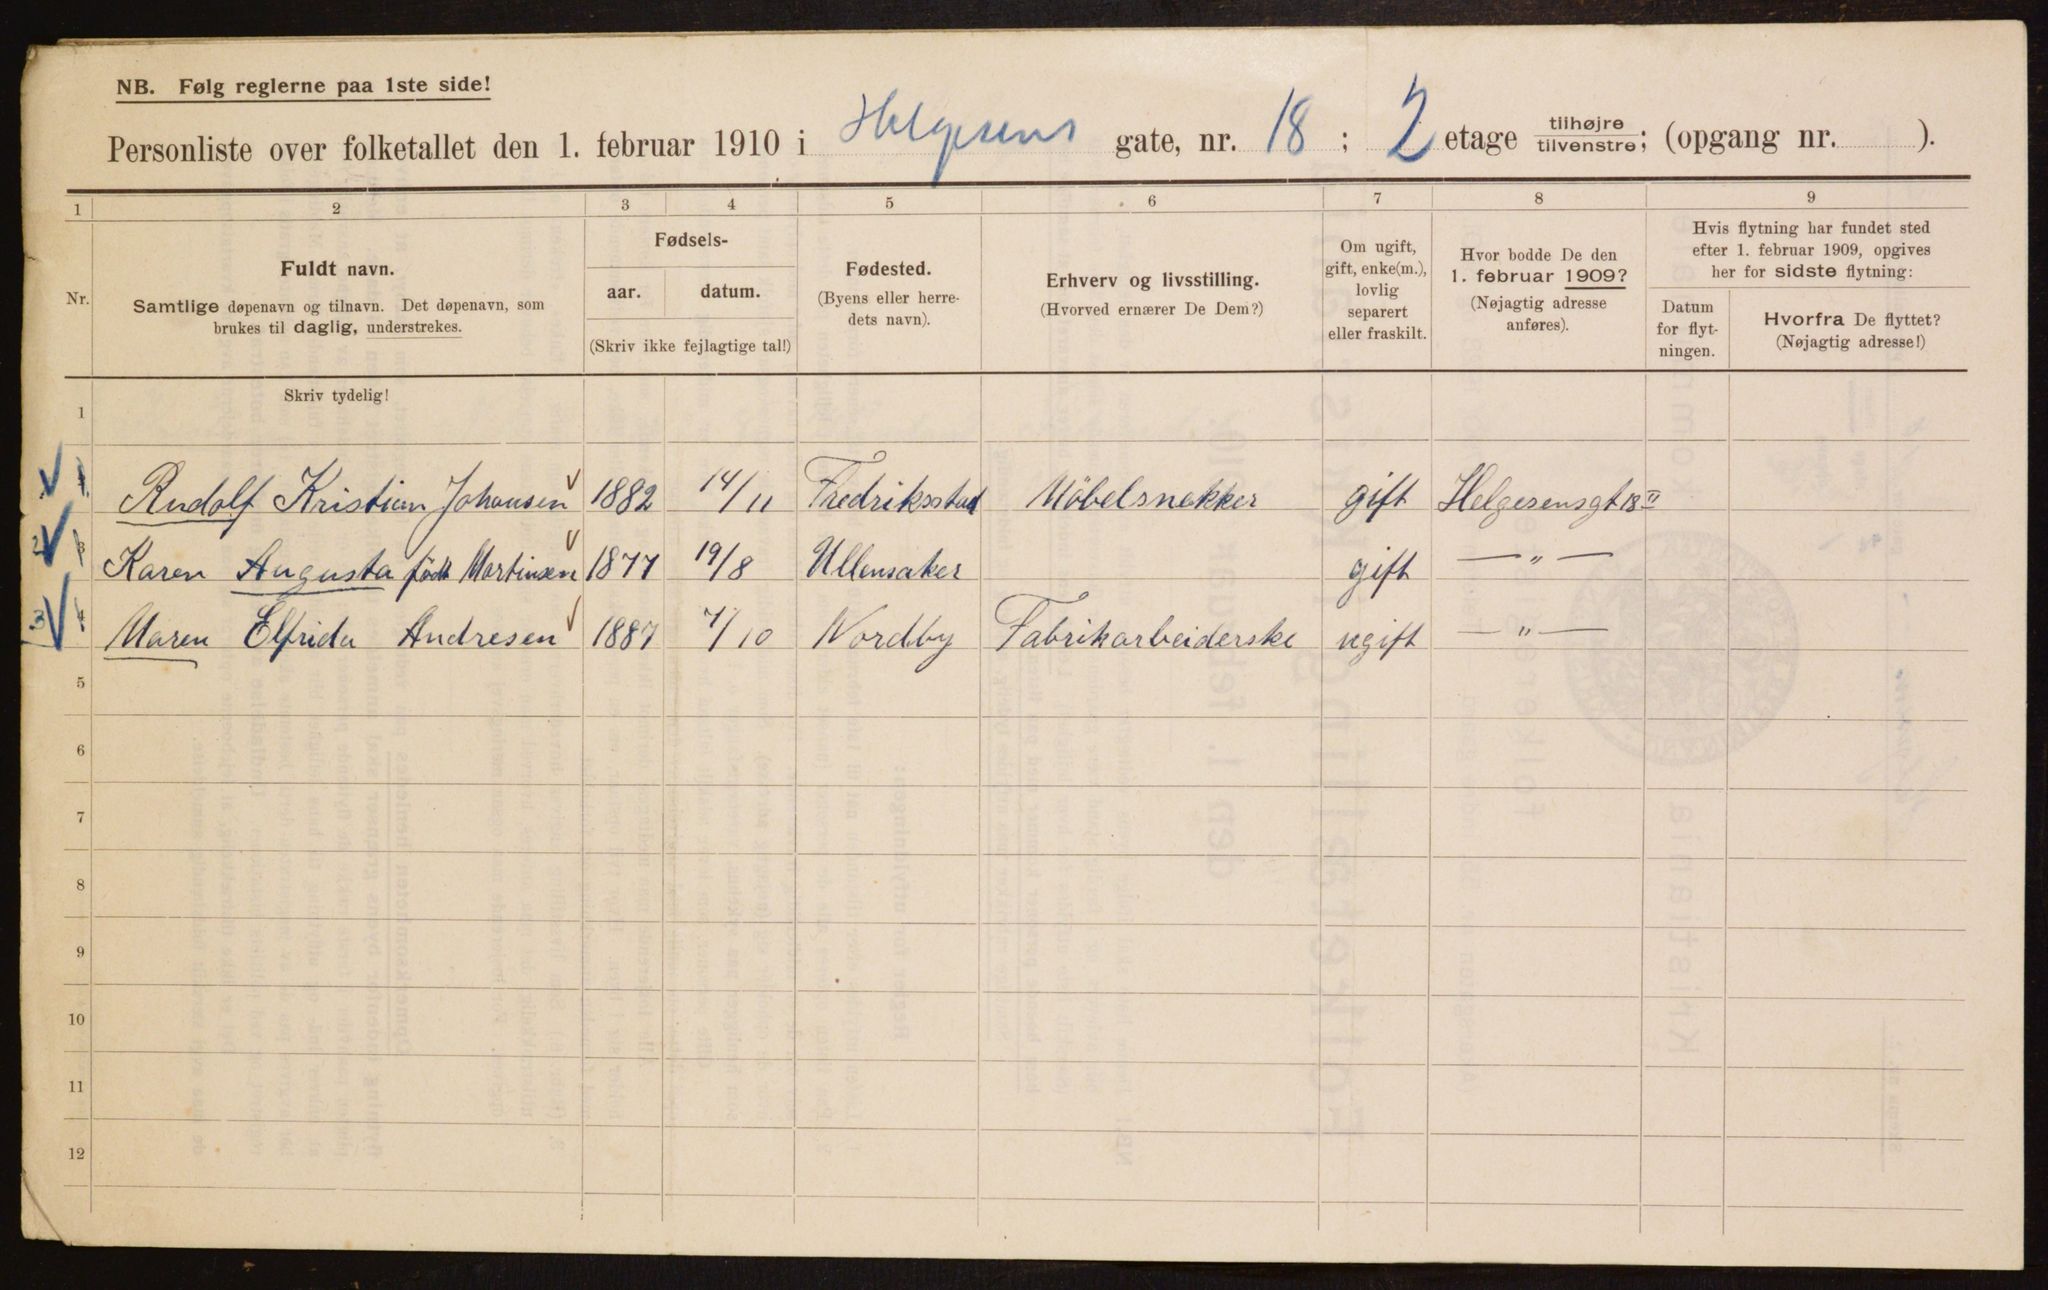 NB. Følg reglerne paa 1ste side!
Personliste over folketallet den 1. februar 1910 i Helgesens gate, nr. 18 ; 2 etage tilhøjre tilvenstre; (opgang nr. ).
1 2 3 4 5 6 7 8 9
Nr.
Fuldt navn.
Samtlige døpenavn og tilnavn. Det døpenavn, som
brukes til daglig, understrekes.
Fødsels-
aar. datum.
(Skriv ikke fejlagtige tal!)
Fødested.
(Byens eller herre-
dets navn).
Erhverv og livsstilling.
(Hvorved ernærer De Dem?)
Om ugift,
gift, enke(m.),
lovlig
separert
eller fraskilt.
Hvor bodde De den
1. februar 1909?
(Nøjagtig adresse
anføres).
Hvis flytning har fundet sted
efter 1. februar 1909, opgives
her for sidste flytning:
Datum
for flyt-
ningen.
Hvorfra De flyttet?
(Nøjagtig adresse!)
Skriv tydelig!
1
Rudolf Kristian Johansen 1882 14/11 Fredriksstad Möbelsnekker gift Helgesensgt 18 II
2 3 Karen Augusta født Martinsen 1877 19/8 Ullensaker gift — " —
3 4 Maren Elfrida Andresen 1887 7/10 Nordby Fabrikarbeiderske ugift — " —
5
6
7
8
9
10
11
12